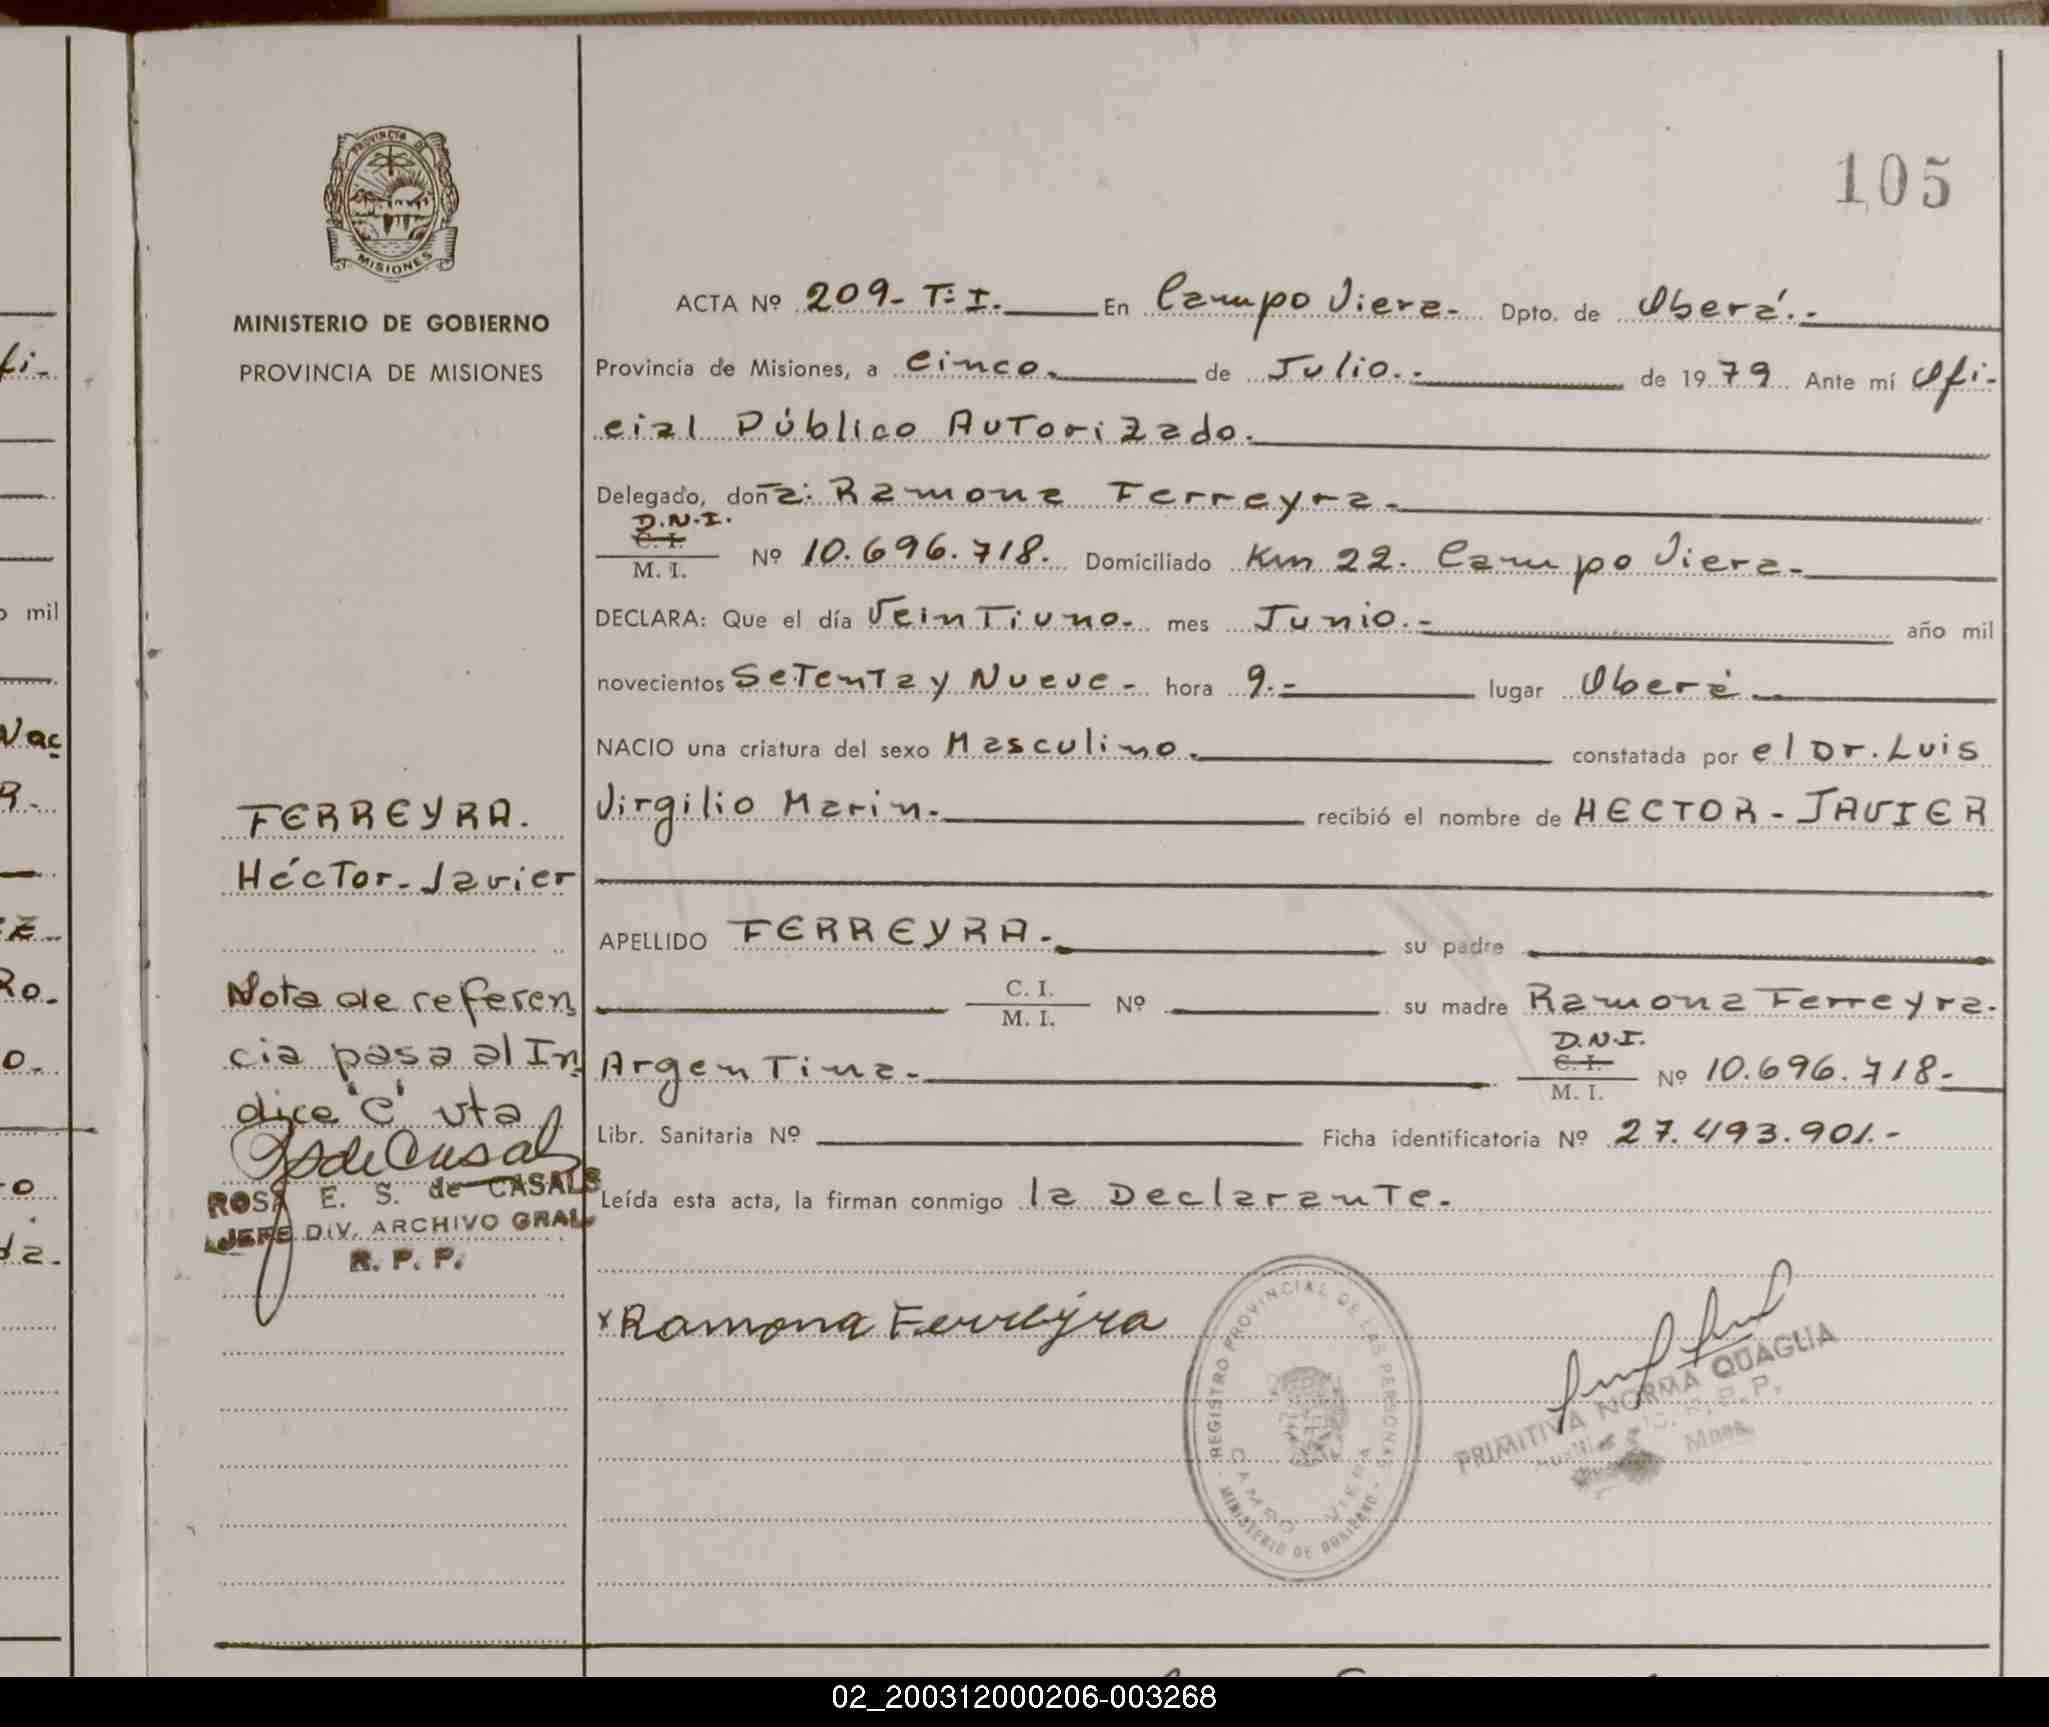 PROVINCIA DE
MISIONES
MINISTERIO DE GOBIERNO
PROVINCIA DE MISIONES
105
ACTA Nº 209- T: I. En Campo Viera- Dpto. de Oberá.-
Provincia de Misiones, a cinco. de Julio.- de 1979 Ante mí Ofi-
cial Público Autorizado.
Delegado, doña: Ramona Ferreyra-
D.N.I.
C. I.
M. I. Nº 10.696.718. Domiciliado Km 22. Campo Viera-
DECLARA: Que el día VeinTiuno- mes Junio.- año mil
novecientos SeTenTa y Nueve- hora 9.- lugar Oberá
NACIO una criatura del sexo Masculino. constatada por el Dr. Luis
Virgilio Marin. recibió el nombre de HECTOR - JAVIER
APELLIDO FERREYRA. su padre
C. I.
M. I. Nº su madre Ramona Ferreyra.
ArgenTina- D.N.I.
C. I.
M. I. Nº 10.696.718-
Libr. Sanitaria Nº Ficha identificatoria Nº 27.493.901.-
Leída esta acta, la firman conmigo la DeclaranTe.
x Ramona Ferreyra
REGISTRO PROVINCIAL DE LAS PERSONAS
CAMPO VIERA
MINISTERIO DE GOBIERNO
PRIMITIVA NORMA QUAGLIA
R. P. P.
Mnes.
FERREYRA.
HécTor-Javier
Nota de referen
cia pasa al In
dice "C" vta
ROSA E. S. de CASALS
JEFE DIV. ARCHIVO GRAL
R. P. P.
fi-
o mil
Nac
R-
Ro.
o-
to
da-
02_200312000206-003268